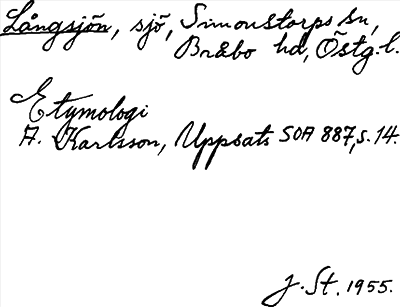 Långsjön, sjö, Simonstorps sn,
Bråbo hd, Östg. l.
Etymologi
A. Karlsson, Uppsats SOA 887, s. 14.
J. St. 1955.